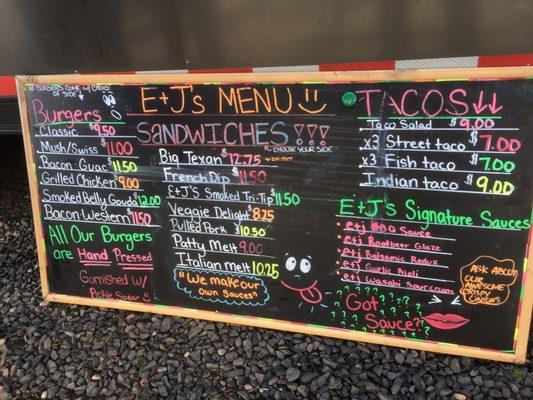 E+J's MENU
All BURGERS COME W/ CHOICE OF SIDE
Burgers
Classic $9.50
Mush/Swiss $11.00
Bacon Guac $11.50
Grilled Chicken $9.00
Smoked Belly Gouda $12.00
Bacon Western $11.50
All Our Burgers
are Hand Pressed
Garnished W/
Pickle Spear
SANDWICHES!!!
CHOOSE YOUR SIDE
Big Texan $12.75
French Dip $11.50
E+J's Smoked Tri-Tip $11.50
Veggie Delight $8.75
Pulled Pork $10.50
Patty Melt $9.00
Italian Melt $10.25
"We make our
own Sauces"
TACOS
Taco Salad $9.00
x3 Street tacos $7.00
x3 Fish tacos $7.00
Indian taco $9.00
E+J's Signature Sauces
e+j BBQ Sauce
e+j RootBeer Glaze
e+j Balsamic Redux
e+j Garlic Aioli
e+j Wasabi Sour cream
ASK ABOUT
OUR
AWESOME
CRISPY
ONIONS
Got
Sauce??